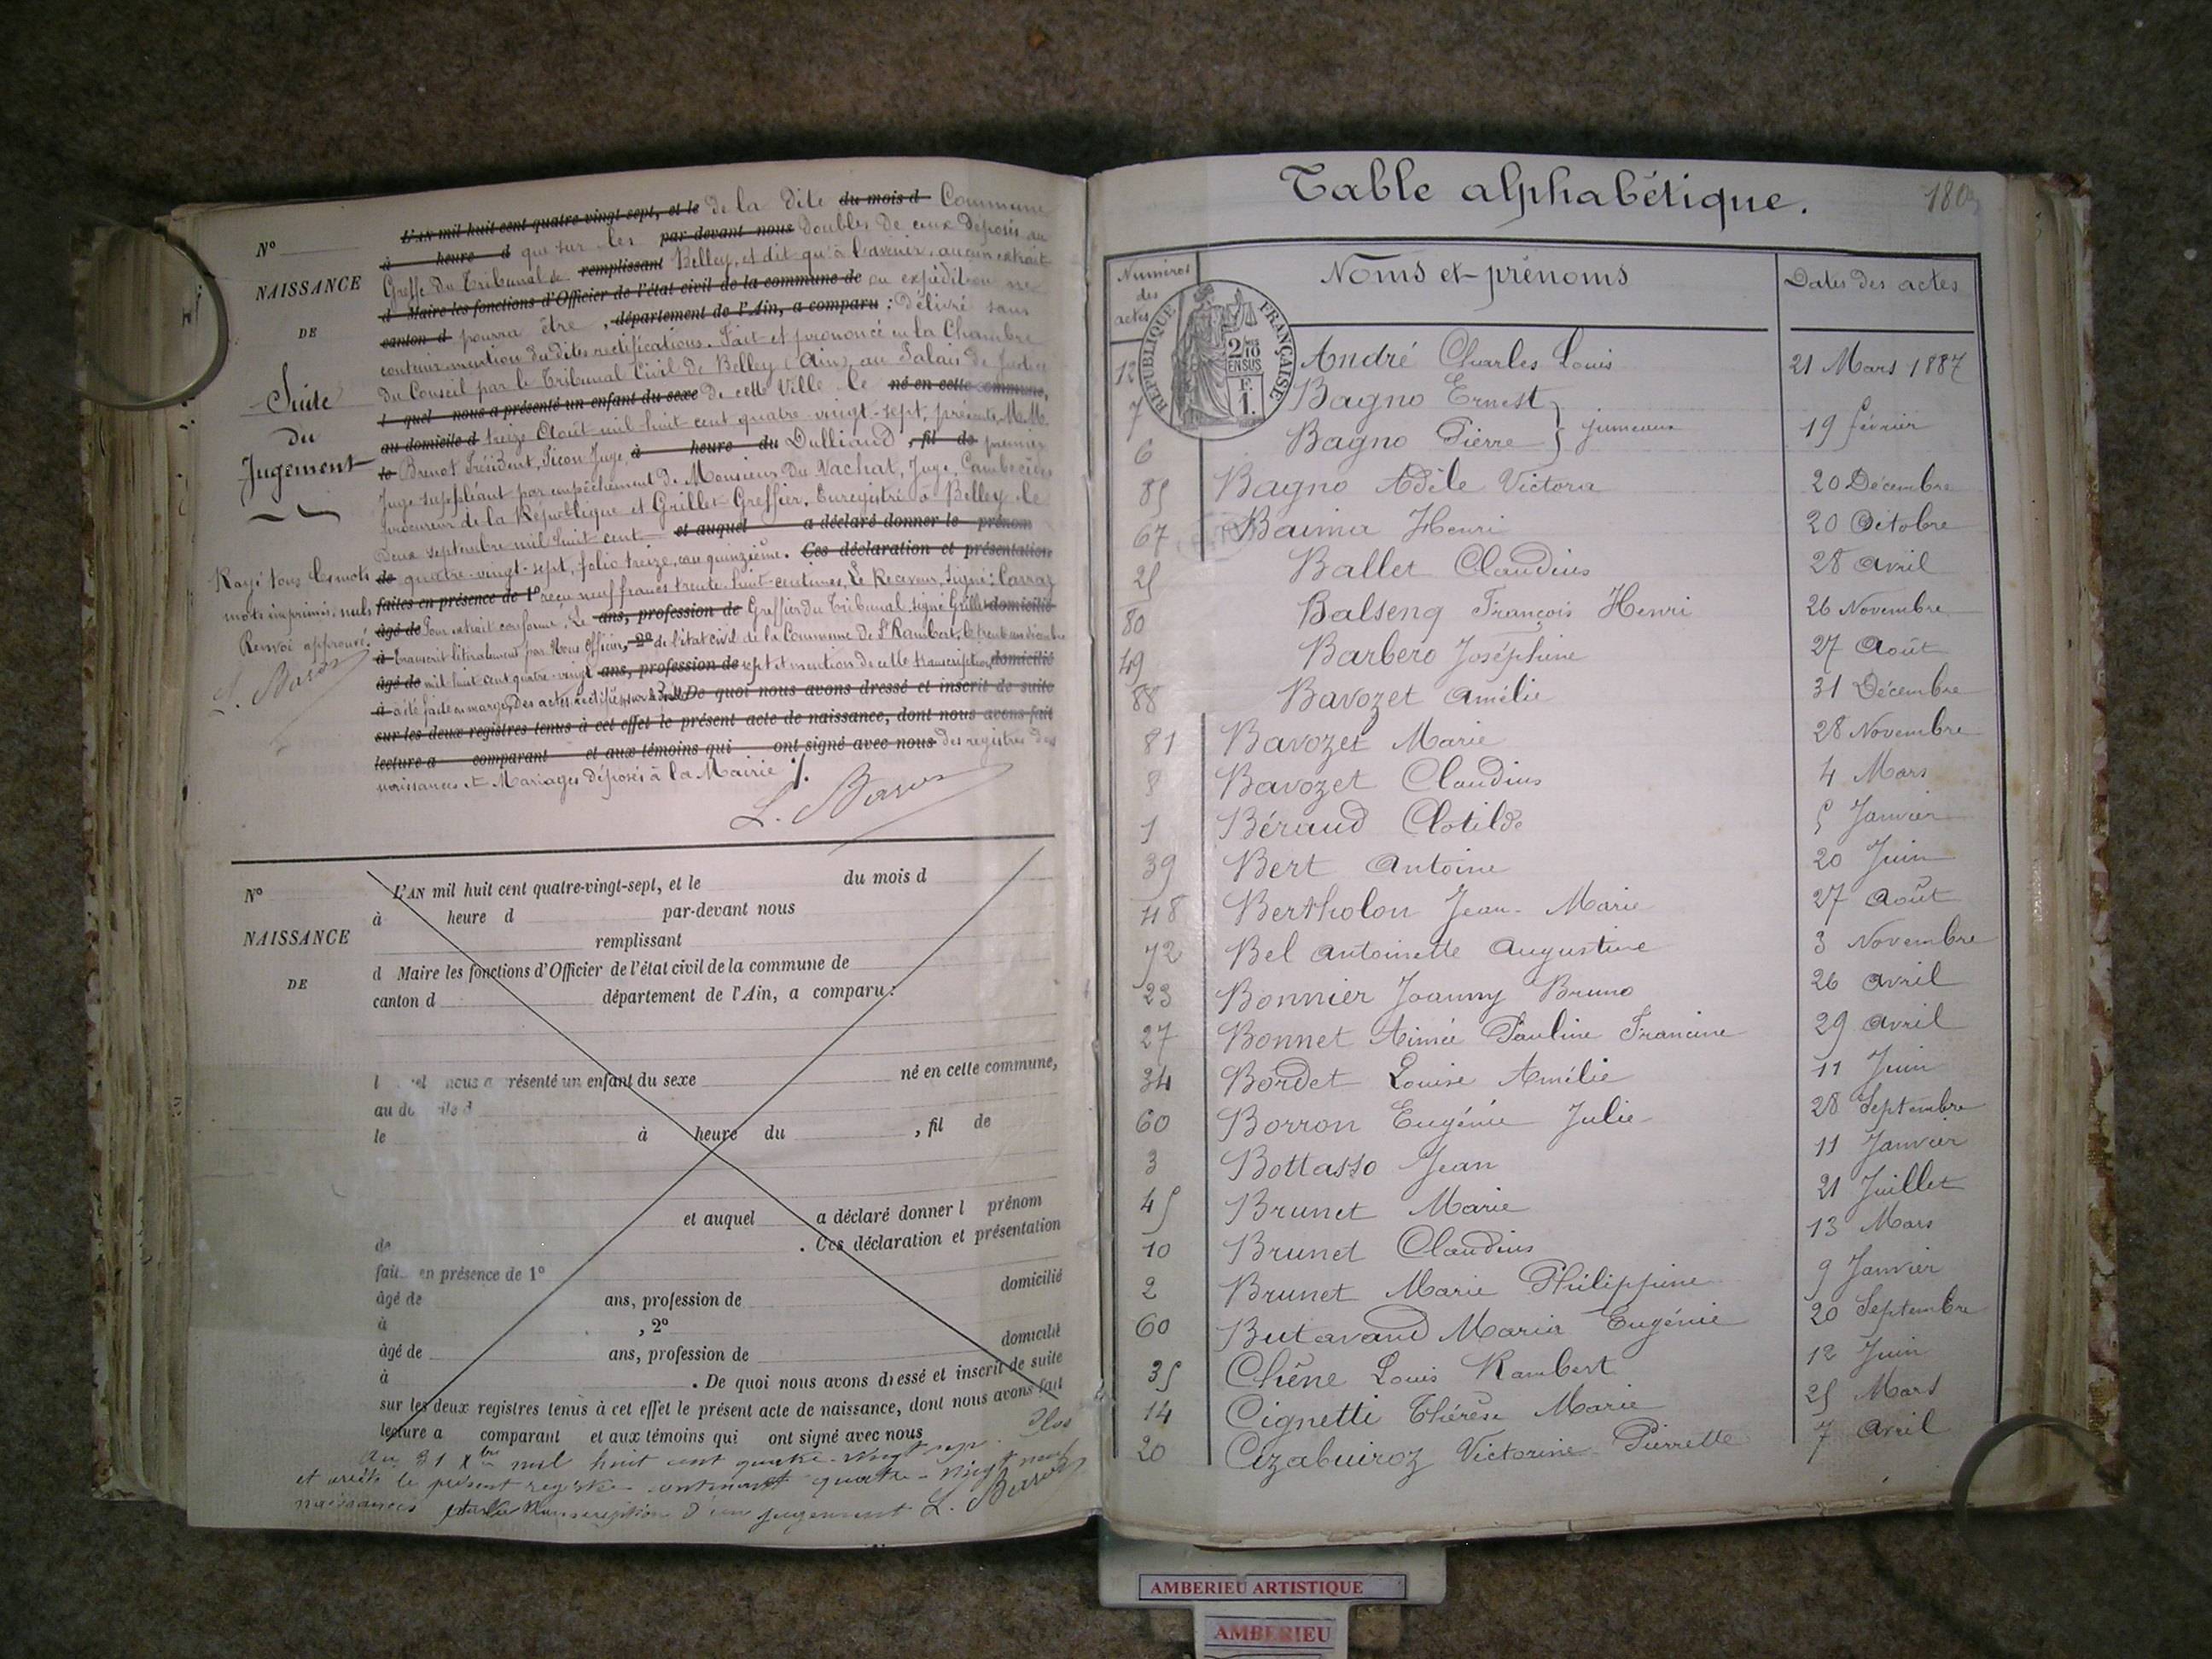 L'AN mil huit cent quatre-vingt-sept, et le de la dite du mois d Commune
à heure d que sur les par-devant nous doubles de ceux déposés au
Greffe du Tribunal de remplissant Belley, et dit qu'à l'avenir, aucun extrait
d Maire les fonctions d'Officier de l'état civil de la commune de ou expédition ne
canton d pourra être , département de l'Ain, a comparu : délivré sans
contenir mention du dites rectifications. Fait et prononcé en la Chambre
du Conseil par le Tribunal Civil de Belley (Ain) au Palais de Justice
l quel nous a présenté un enfant du sexe de cette Ville le né en cette commune,
au domicile d treize Août mil huit cent quatre-vingt-sept, présents M.M.
le Brenot Président, Picon Juge, à heure du Dulliand , fil de premier
Juge suppléant par empêchement de Monsieur Du Vachat, Juge,
Procureur de la République et Grillet Greffier. Enregistré à Belley le
Deux septembre mil huit cent et auquel a déclaré donner le prénom
de quatre-vingt-sept, folio treize, case quinzième. Ces déclaration et présentation
faites en présence de 1° reçu neuf francs trente-huit centimes, Le Receveur, signé: Carraz
âgé de Pour extrait conforme, Le ans, profession de Greffier du Tribunal signé Grillet domicilié
à Transcrit littéralement par Nous Officier, 2° de l'état civil de la Commune de St Rambert, le trente un décembre
âgé de mil huit cent quatre-vingt ans, profession de sept et mention de cette transcription domicilié
à a été faite en marge des actes rectifiés De quoi nous avons dressé et inscrit de suite
sur les deux registres tenus à cet effet le présent acte de naissance, dont nous avons fait
lecture a comparant et aux témoins qui ont signé avec nous des registres des
naissances et Mariages déposés à la Mairie ./.
N°
NAISSANCE
DE
Suite
du
Jugement
Rayé tous les mots
mots imprimés nuls
Renvoi approuvé.
N°
NAISSANCE
DE
L'AN mil huit cent quatre-vingt-sept, et le du mois d
à heure d par-devant nous
remplissant
d Maire les fonctions d'Officier de l'état civil de la commune de
canton d département de l'Ain, a comparu :
l el nous a résenté un enfant du sexe né en cette commune,
au do ile d
le à heure du , fil de
et auquel a déclaré donner l prénom
de . Ces déclaration et présentation
fait en présence de 1°
âgé de ans, profession de domicilié
à , 2°
âgé de ans, profession de domicilié
à . De quoi nous avons dressé et inscrit de suite
sur les deux registres tenus à cet effet le présent acte de naissance, dont nous avons fait
lecture a comparant et aux témoins qui ont signé avec nous
Clos
Au 31 Xbre mil huit cent quatre-vingt sept
et arrêté le présent registre contenant quatre-vingt neuf
naissances transcription d'un jugement
Table alphabétique.
Numéros des actes Noms et prénoms Dates des actes
RÉPUBLIQUE FRANÇAISE
2/10 EN SUS
F. 1.
12 André Charles Louis 21 Mars 1887
7 Bagno Ernest
6 Bagno Pierre } jumeaux 19 février
85 Bagno Adèle Victora 20 Décembre
67 Baima Henri 20 Octobre
25 Ballet Claudius 28 avril
80 Balseng François Henri 26 Novembre
49 Barbero Joséphine 27 Août
88 Bavozet Amélie 31 Décembre
81 Bavozet Marie 28 Novembre
8 Bavozet Claudius 4 Mars
1 Béraud Clotilde 5 Janvier
39 Bert Antoine 20 Juin
48 Bertholon Jean-Marie 27 Août
72 Bel Antoinette Augustine 3 Novembre
23 Bonnier Joanny Bruno 26 avril
27 Bonnet Aimée Pauline Francine 29 avril
34 Bordet Louise Amélie 11 Juin
60 Borron Eugénie Julie 28 Septembre
3 Bottasso Jean 11 Janvier
45 Brunet Marie 21 Juillet
10 Brunet Claudius 13 Mars
2 Brunet Marie Philippine 9 Janvier
60 Butavand Maria Eugénie 20 Septembre
35 Chêne Louis Rambert 12 Juin
14 Cignetti Thérèse Marie 25 Mars
20 Cizabuiroz Victorine Pierrette 7 avril
AMBERIEU ARTISTIQUE
AMBERIEU